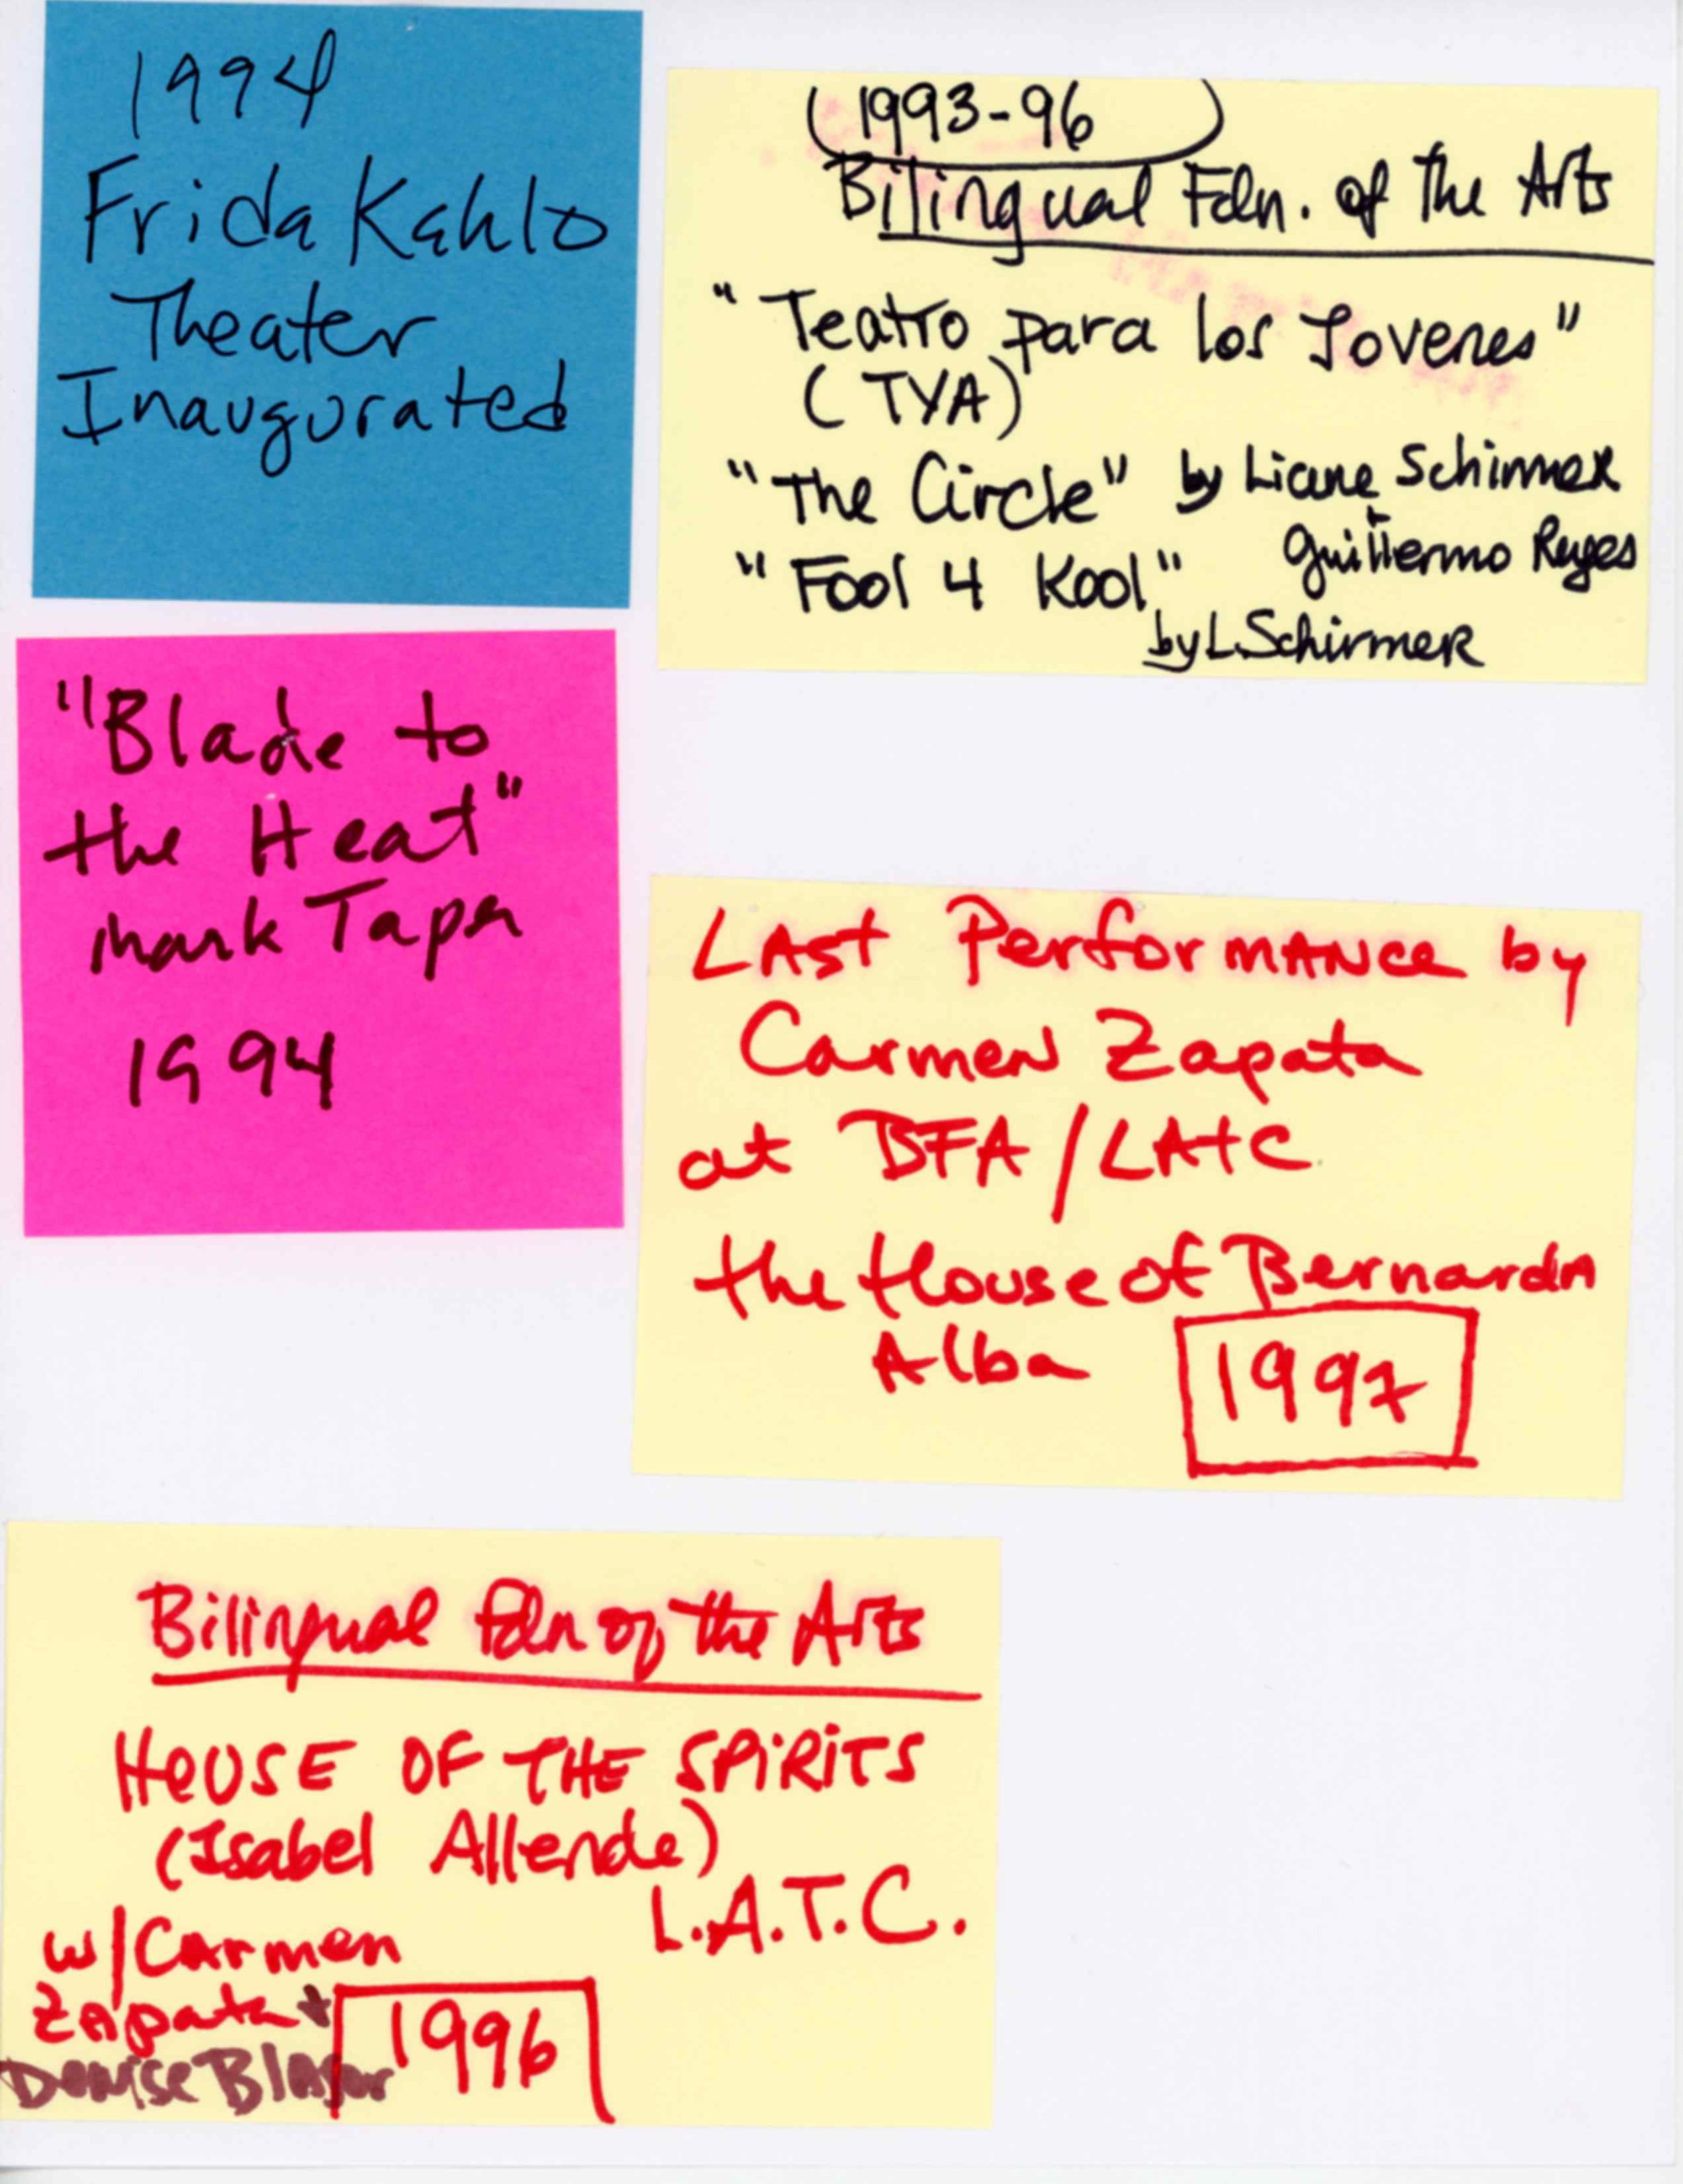 1994
Frida Kahlo
Theater
Inaugurated
(1993-96)
Bilingual Fdn. of the Arts
"Teatro para los Jovenes"
(TYA)
"The Circle" by Liane Schirmer
+
Guillermo Reyes
"Fool 4 Kool"
by L. Schirmer
"Blade to
the Heat"
Mark Taper
1994
LAst PerforMANce by
Carmen Zapata
at BFA/LATC
the House of BernardA
Alba 1997
Bilingual Fdn of the Arts
HOUSE OF THE SPiRiTS
(Isabel Allende)
L.A.T.C.
w/Carmen
Zapata +
Denise Blasor
1996